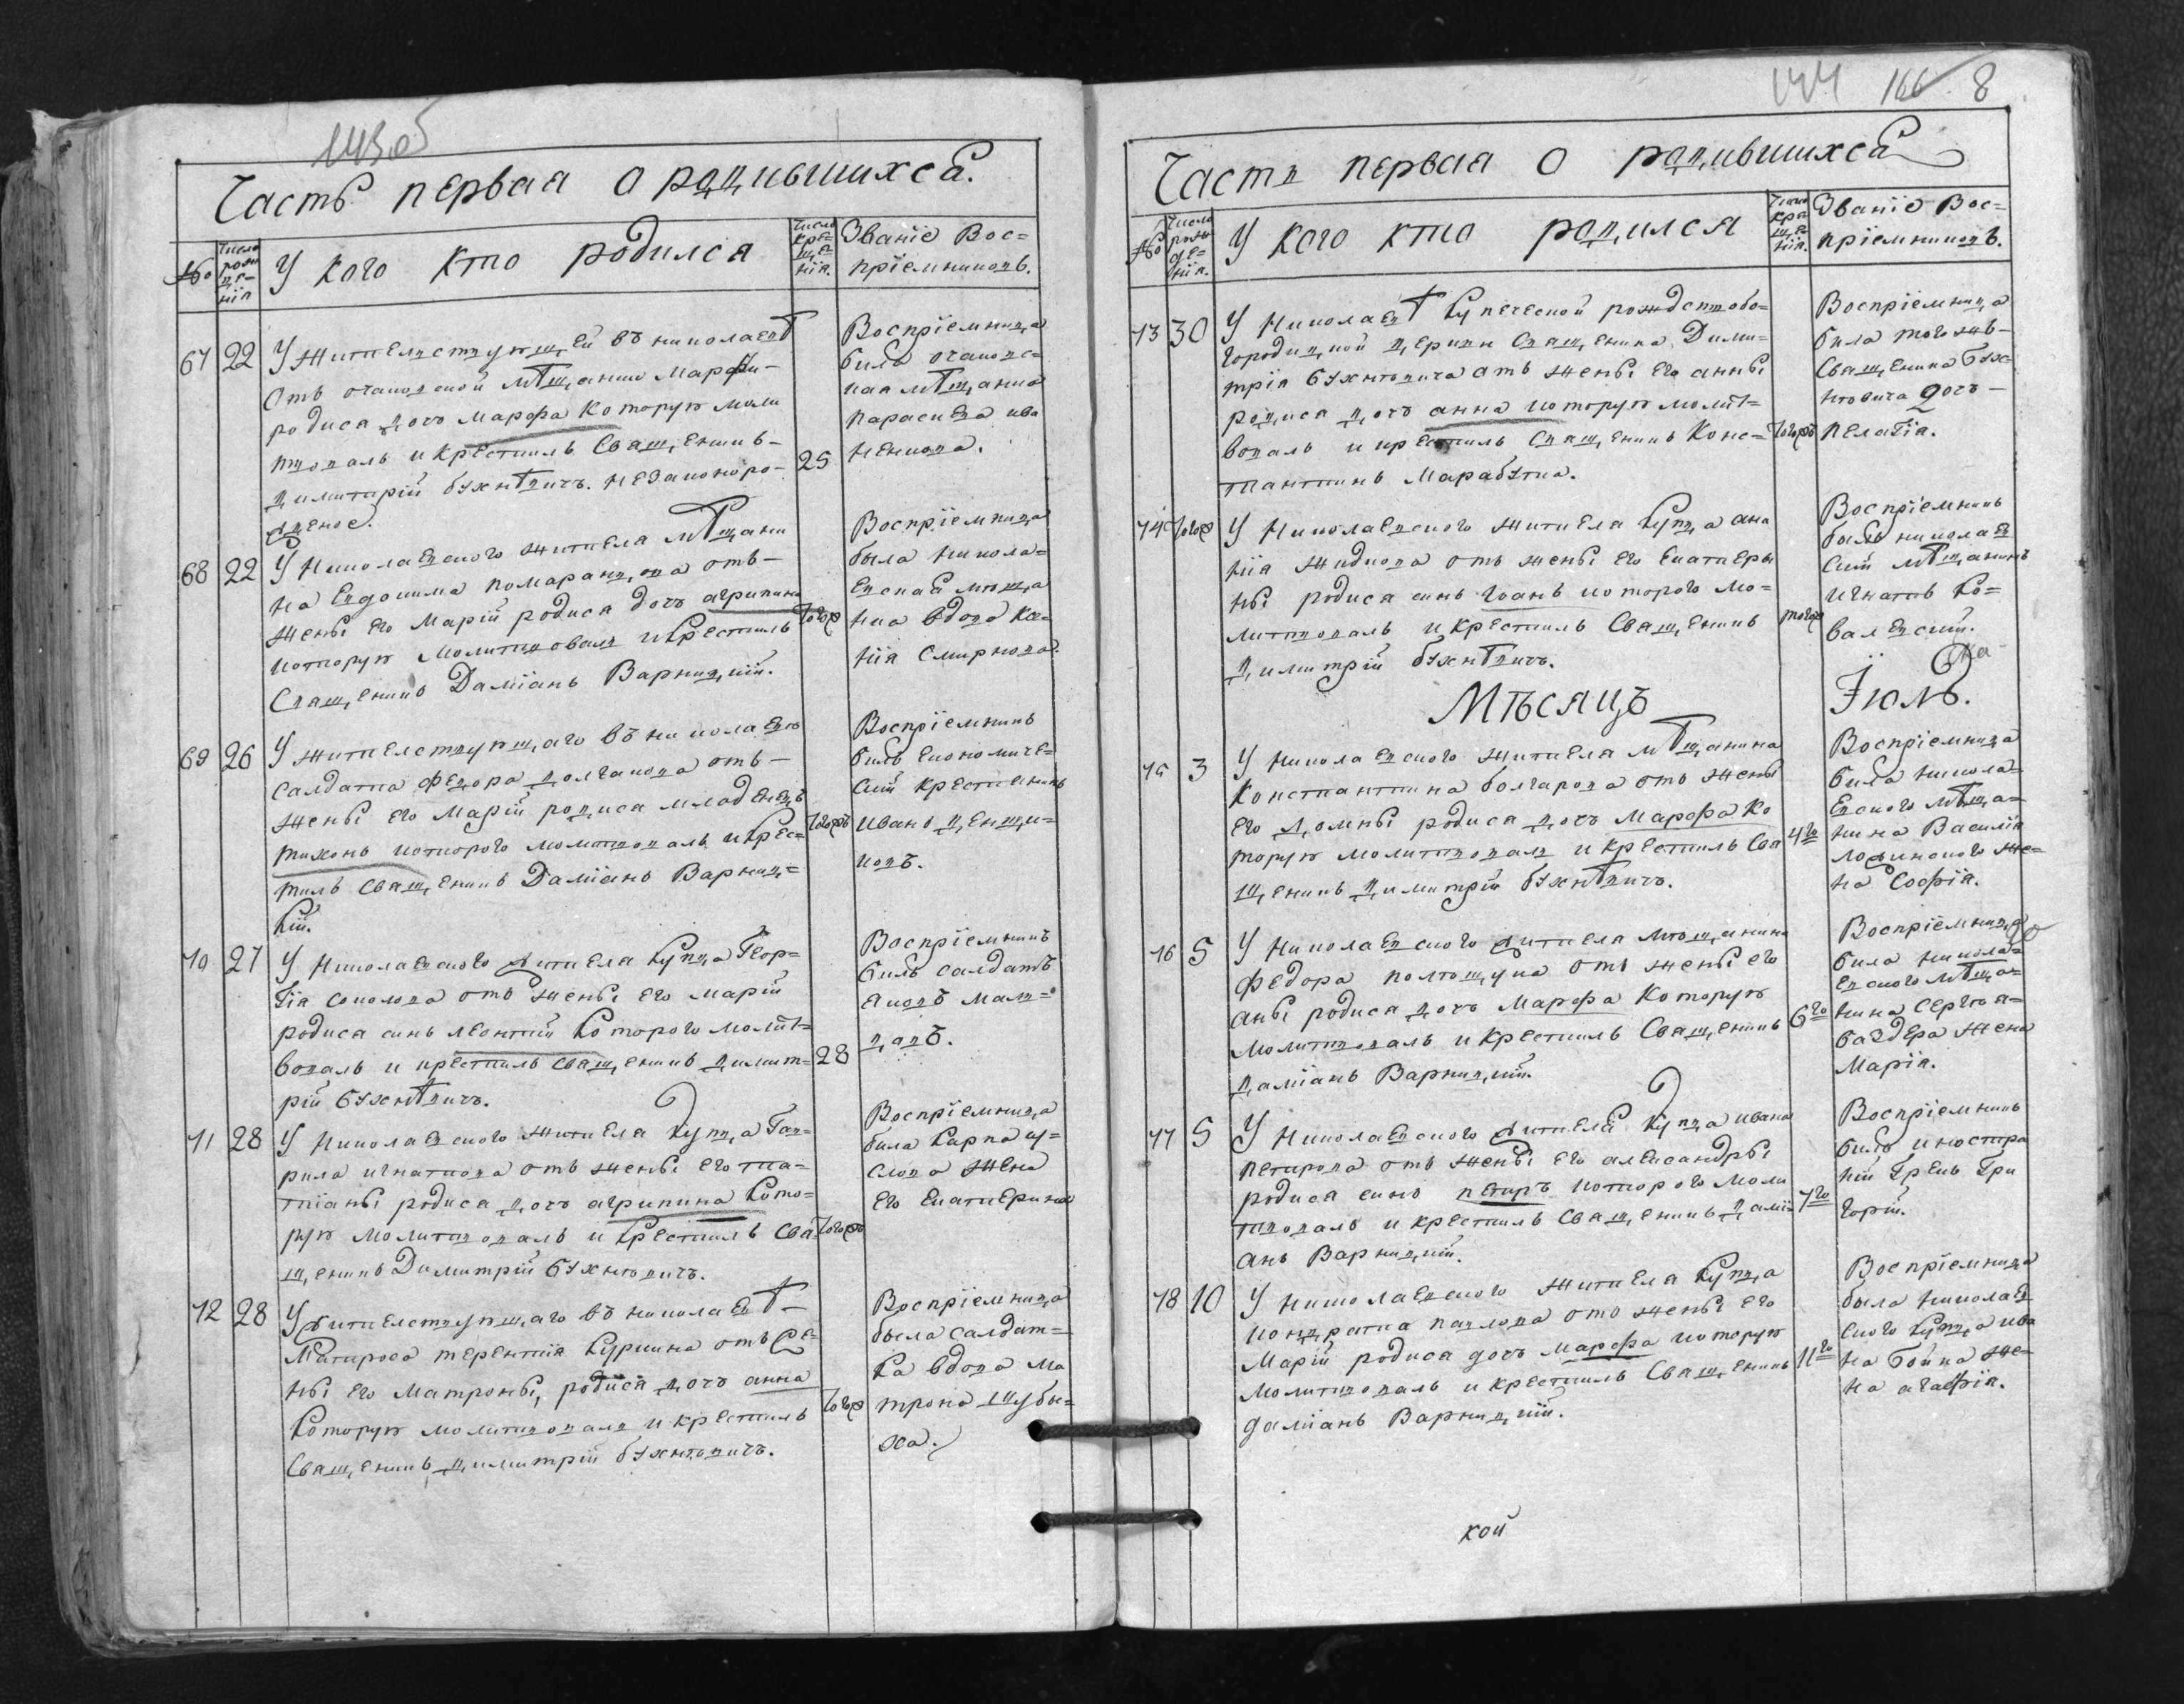 143об
Часть первая о родившихся.
№
Число рождения
У кого кто родился
Число крещения
Званіе Вос=
пріемниковъ.
67 22 У жителствующей въ николаевѣ
отъ очаковской мѣщанки Марфи-
родися дочь Марфа которую моли
твовалъ и крестилъ Священикъ-
димитрій бухнѣвичъ. незаконоро- 25
жденое.
Воспріемница
била очаковс=
кая мѣщанка
параскева ива
ненкова.
68 22 У Николаевского жителя мѣщани
на Евдокима помаранцова отъ-
жены его Маріи родися дочь агрипина
которую молитвовалъ и крестилъ тогожъ
Священикъ Даміанъ Варницкій.
Воспріемница
была никола=
евская мѣща
нка вдова Ксе=
нія Смирнова.
69 26 У жителствующаго въ николаевѣ
салдата федора долгапова отъ-
жены его Маріи родися младенецъ
тихонъ которого молитвовалъ и крес= тогожъ
тилъ Священикъ Даміанъ Варниц=
кій.
Воспріемникъ
билъ економиче=
скій крестиянинъ
иванъ
ковъ.
70 27 У Николаевского жителя купца Геор=
гія соколова отъ жены его Маріи
родися синъ леонтій которого молит=
вовалъ и крестилъ священикъ димит= 28
рій бухнѣвичъ.
Воспріемникъ
билъ салдатъ
яковъ
71 28 У Николаевского жителя купца Гав=
рила игнатова отъ жены его та=
тіаны родися дочь агрипина кото=
рую молитвовалъ и крестилъ Свя тогожъ
щеникъ Димитрій бухнѣвичъ.
Воспріемница
била карпа
слова жена
его екатерина
72 28 У жителствующаго въ николаевѣ-
Матроса терентія куркина отъ же=
ны его Матроны, родися дочь анна
которую молитвовалъ и крестилъ тогожъ
Священикъ димитрій бухнѣвичъ.
Воспріемница
была салдат=
ка вдова ма
трона шубы=
ха.
144 166 8
Часть первая о родившихся
№
Число рожденія.
У кого кто родился
Число крещенія.
Званіе Вос=
пріемниковъ.
73 30 У Николаевѣ купеческой рождествобо=
городицкой церкви священика Дими=
трія бухнѣвича отъ жены его анны
родися дочь анна которую молит=
вовалъ и крестилъ священикъ Конс= тогожъ
тантинъ Марабутка.
Воспріемница
била тогожъ-
Священика бух
нѣвича дочь-
пелагія.
74 тогожъ У Николаевского жителя купца ана
нія жидкова отъ жены его екатери
ны родися синъ іоанъ которого мо=
литвовалъ и крестилъ Священикъ тогожъ
димитрій бухнѣвичъ.
Воспріемникъ
былъ николаев
скій мѣщанинъ
игнатъ ко=
валевскій.
Мѣсяцъ
Іюль.
75 3 У Николаевского жителя мѣщанина
Константина болгарова отъ жены
его домны родися дочь марфа ко
торую молитвовалъ и крестилъ Свя 4го
щеникъ димитрій бухнѣвичъ.
Воспріемница
била никола=
евского мѣща=
нина Василія
же=
на Софія.
76 5 У Николаевского жителя мѣщанина
федора отъ жены его
аны родися дочь марфа которую
молитвовалъ и крестилъ Священикъ 6го
даміанъ Варницкій.
Воспріемница
била никола=
евского мѣща=
нина Сергѣя=
баздера жена
Марія.
77 5 У Николаевского жителя купца ивана
петирова отъ жены его александры
родися синъ петръ которого моли
твовалъ и крестилъ священикъ дамі 7го
анъ Варницкій.
Воспріемникъ
билъ иностра
ній Грекъ Гри
горій.
78 10 У николаевского жителя купца
кондратия павлова отъ жены его
Маріи родися дочь марфа которую
молитвовалъ и крестилъ Священикъ 11го
даміанъ Варницкій.
Воспріемница
была николаев
ского купца ива
на бойка же=
на агафія.
кой